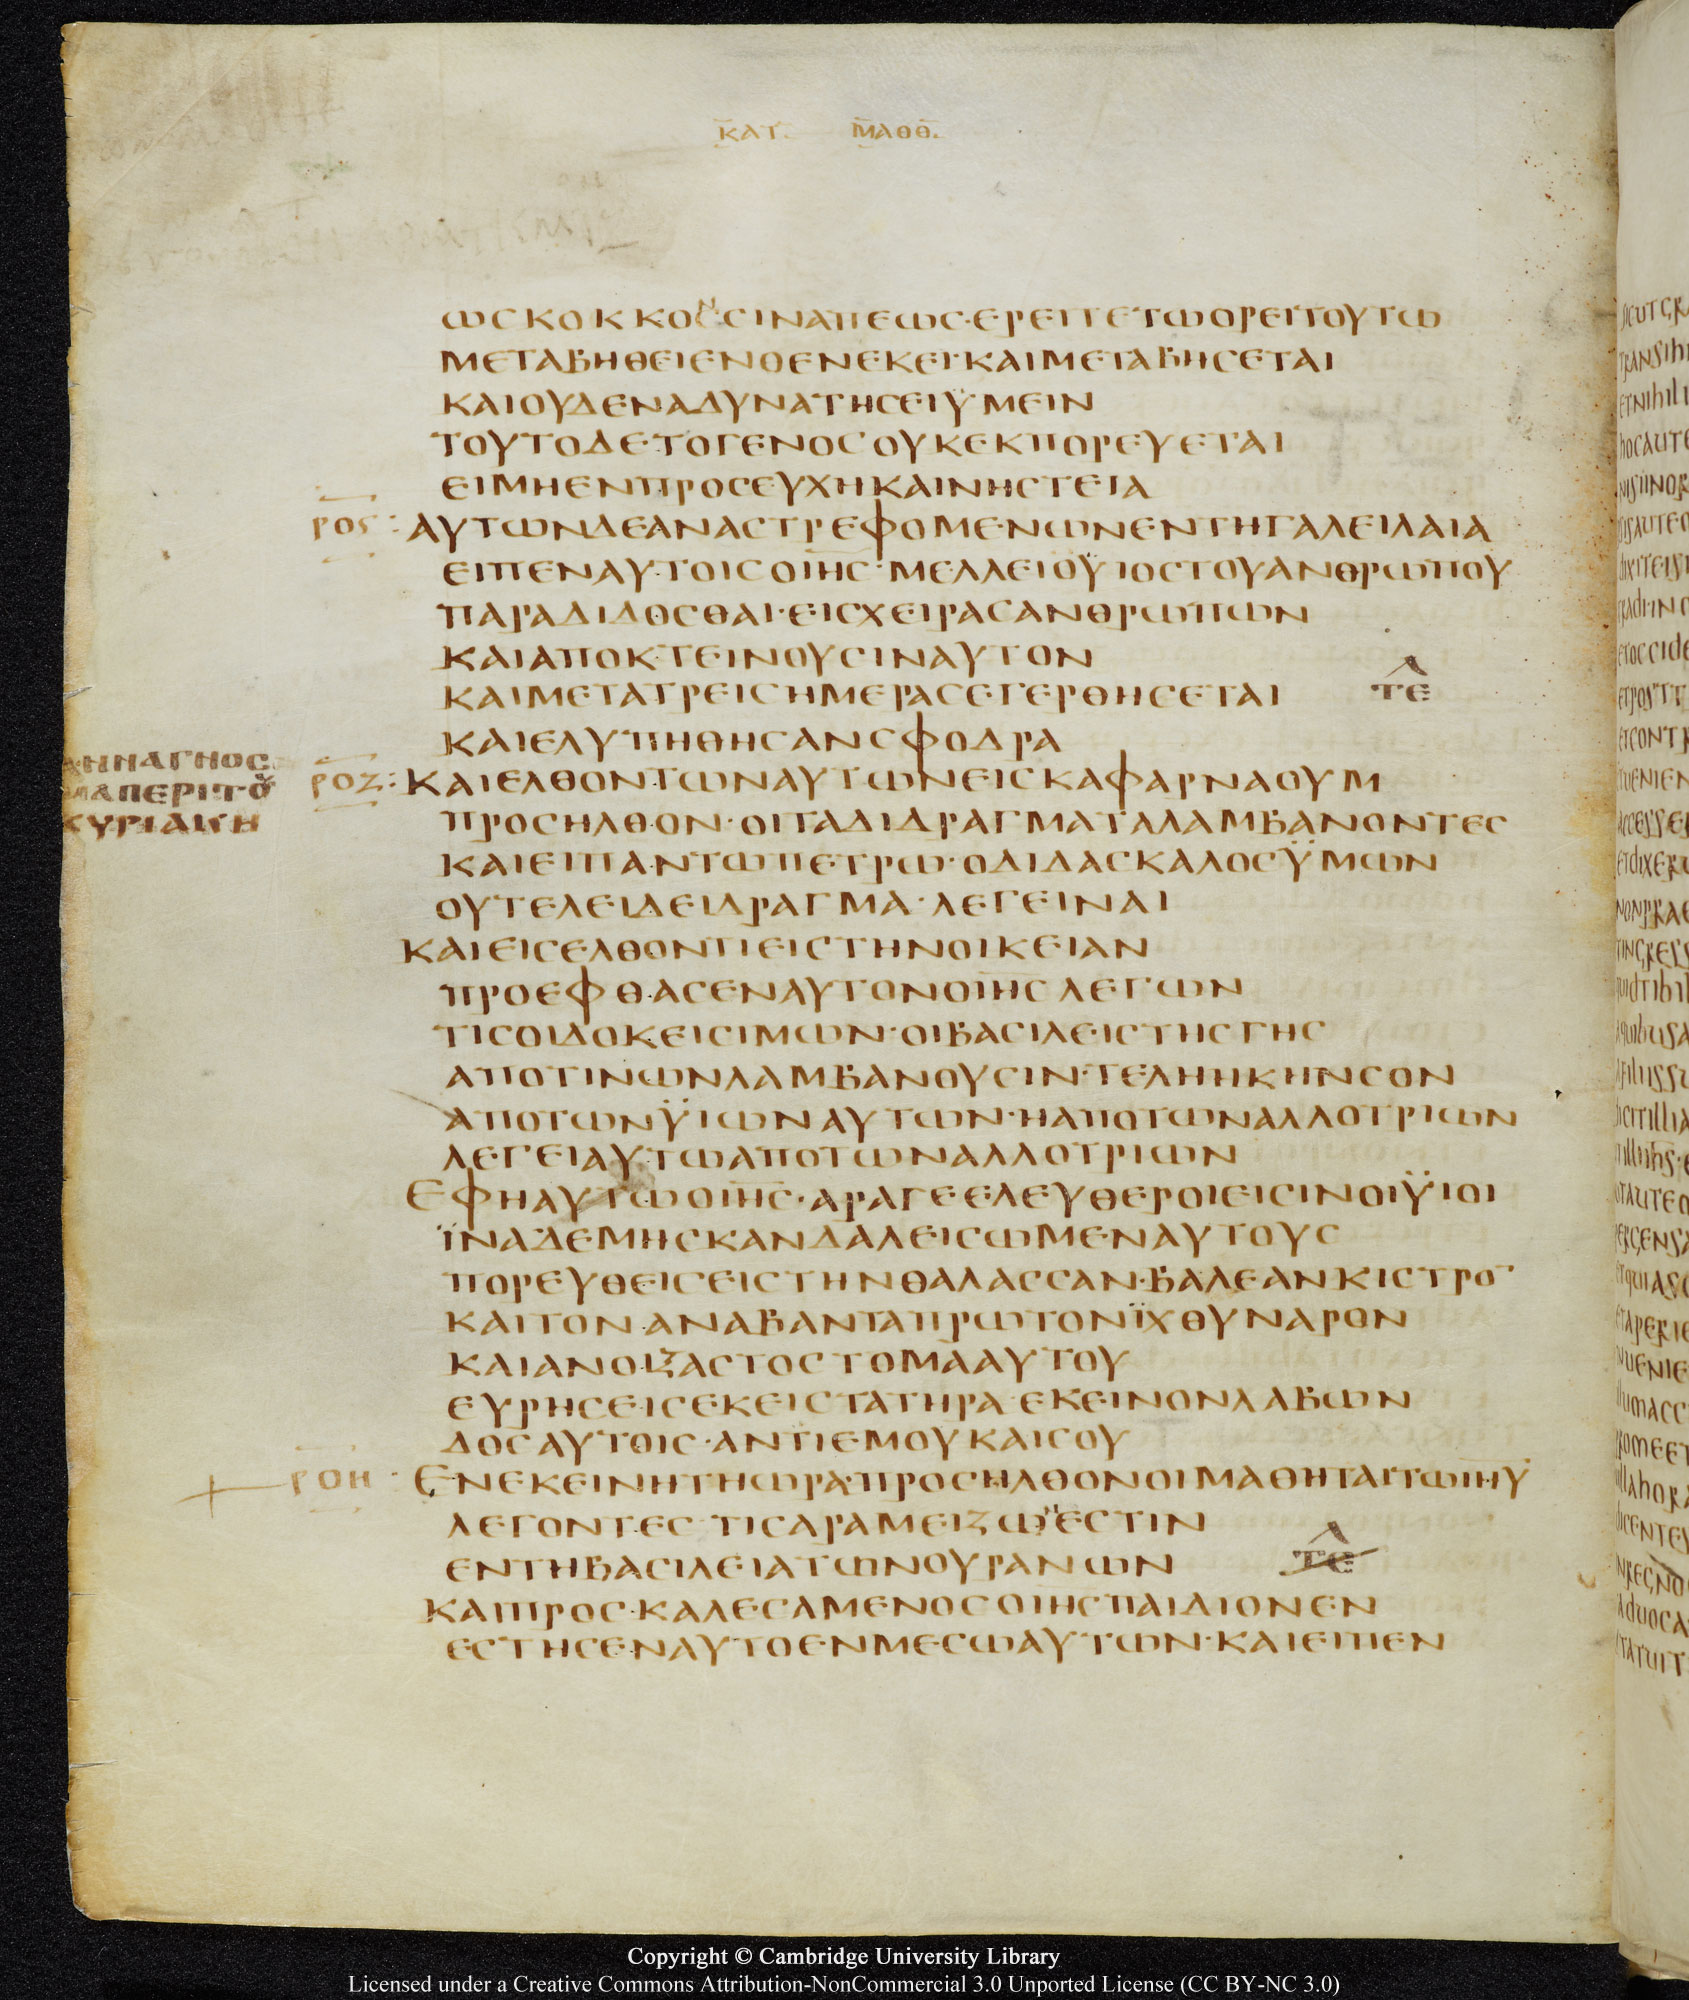 ΚΑΤ. ΜΑΘΘ.
ΩΣΚΟΚΚΟΝ·ΣΙΝΑΠΕΩΣ·ΕΡΕΙΤΕΤΩΟΡΕΙΤΟΥΤΩ
ΜΕΤΑΒΗΘΕΙΕΝΘΕΝΕΚΕΙ·ΚΑΙΜΕΤΑΒΗΣΕΤΑΙ
ΚΑΙΟΥΔΕΝΑΔΥΝΑΤΗΣΕΙΫΜΕΙΝ
ΤΟΥΤΟΔΕΤΟΓΕΝΟΣΟΥΚΕΚΠΟΡΕΥΕΤΑΙ
ΕΙΜΗΕΝΠΡΟΣΕΥΧΗΚΑΙΝΗΣΤΕΙΑ
ΡΟϚ: ΑΥΤΩΝΔΕΑΝΑΣΤΡΕΦΟΜΕΝΩΝΕΝΤΗΓΑΛΕΙΛΑΙΑ
ΕΙΠΕΝΑΥΤΟΙΣΟΙΗΣ·ΜΕΛΛΕΙΟΫΙΟΣΤΟΥΑΝΘΡΩΠΟΥ
ΠΑΡΑΔΙΔΟΣΘΑΙ·ΕΙΣΧΕΙΡΑΣΑΝΘΡΩΠΩΝ
ΚΑΙΑΠΟΚΤΕΙΝΟΥΣΙΝΑΥΤΟΝ
ΚΑΙΜΕΤΑΤΡΕΙΣΗΜΕΡΑΣΕΓΕΡΘΗΣΕΤΑΙ ΤΕΛ
ΚΑΙΕΛΥΠΗΘΗΣΑΝΣΦΟΔΡΑ
ΑΝΝΑΓΝΟΣ
ΜΑΠΕΡΙΤΟΥ
ΚΥΡΙΑΚΗ
ΡΟΖ: ΚΑΙΕΛΘΟΝΤΩΝΑΥΤΩΝΕΙΣΚΑΦΑΡΝΑΟΥΜ
ΠΡΟΣΗΛΘΟΝ·ΟΙΤΑΔΙΔΡΑΓΜΑΤΑΛΑΜΒΑΝΟΝΤΕΣ
ΚΑΙΕΙΠΑΝΤΩΠΕΤΡΩ·ΟΔΙΔΑΣΚΑΛΟΣΫΜΩΝ
ΟΥΤΕΛΕΙΔΕΙΔΡΑΓΜΑ·ΛΕΓΕΙΝΑΙ
ΚΑΙΕΙΣΕΛΘΟΝΤΙΕΙΣΤΗΝΟΙΚΕΙΑΝ
ΠΡΟΕΦΘΑΣΕΝΑΥΤΟΝΟΙΗΣΛΕΓΩΝ
ΤΙΣΟΙΔΟΚΕΙΣΙΜΩΝ·ΟΙΒΑΣΙΛΕΙΣΤΗΣΓΗΣ
ΑΠΟΤΙΝΩΝΛΑΜΒΑΝΟΥΣΙΝ·ΤΕΛΗΗΚΗΝΣΟΝ
ΑΠΟΤΩΝΫΙΩΝΑΥΤΩΝ·ΗΑΠΟΤΩΝΑΛΛΟΤΡΙΩΝ
ΛΕΓΕΙΑΥΤΩΑΠΟΤΩΝΑΛΛΟΤΡΙΩΝ
ΕΦΗΑΥΤΩΟΙΗΣ·ΑΡΑΓΕΕΛΕΥΘΕΡΟΙΕΙΣΙΝΟΙΫΙΟΙ
ΪΝΑΔΕΜΗΣΚΑΝΔΑΛΕΙΣΩΜΕΝΑΥΤΟΥΣ
ΠΟΡΕΥΘΕΙΣΕΙΣΤΗΝΘΑΛΑΣΣΑΝ·ΒΑΛΕΑΝΚΙΣΤΡΟ¯
ΚΑΙΤΟΝΑΝΑΒΑΝΤΑΠΡΩΤΟΝΪΧΘΥΝΑΡΟΝ
ΚΑΙΑΝΟΙΞΑΣΤΟΣΤΟΜΑΑΥΤΟΥ
ΕΥΡΗΣΕΙΣΕΚΕΙΣΤΑΤΗΡΑ·ΕΚΕΙΝΟΝΛΑΒΩΝ
ΔΟΣΑΥΤΟΙΣ·ΑΝΤΙΕΜΟΥΚΑΙΣΟΥ
ΡΟΗ· ΕΝΕΚΕΙΝΗΤΗΩΡΑ·ΠΡΟΣΗΛΘΟΝΟΙΜΑΘΗΤΑΙΤΩΙΗΥ
ΛΕΓΟΝΤΕΣ·ΤΙΣΑΡΑΜΕΙΖΩΝΕΣΤΙΝ
ΕΝΤΗΒΑΣΙΛΕΙΑΤΩΝΟΥΡΑΝΩΝ ΤΕΛ
ΚΑΙΠΡΟΣΚΑΛΕΣΑΜΕΝΟΣΟΙΗΣΠΑΙΔΙΟΝΕΝ
ΕΣΤΗΣΕΝΑΥΤΟΕΝΜΕΣΩΑΥΤΩΝ·ΚΑΙΕΙΠΕΝ
Copyright © Cambridge University Library
Licensed under a Creative Commons Attribution-NonCommercial 3.0 Unported License (CC BY-NC 3.0)